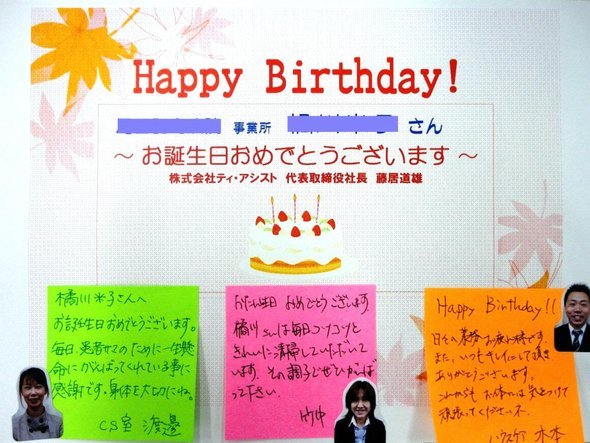 Happy Birthday!
事業所 さん
～ お誕生日おめでとうございます ～
株式会社ティ・アシスト 代表取締役社長 藤居道雄
橘川米子さんへ
お誕生日おめでとうございます。
毎日、患者サマのために一生懸
命にがんばってくれている事に
感謝です。身体を大切にね。
CS室 渡邊
おたん生日 おめでとうございます。
橘川さんは毎日コツコツと
きちんと清掃していただいて
います。その調子でぜひがんば
って下さい。
竹中
Happy Birthday!!
日々の業務お疲れ様です。
また、いつもキレイにして頂き
ありがとうございます。
これからも お体には気をつけて
頑張ってくださいネ。
木本